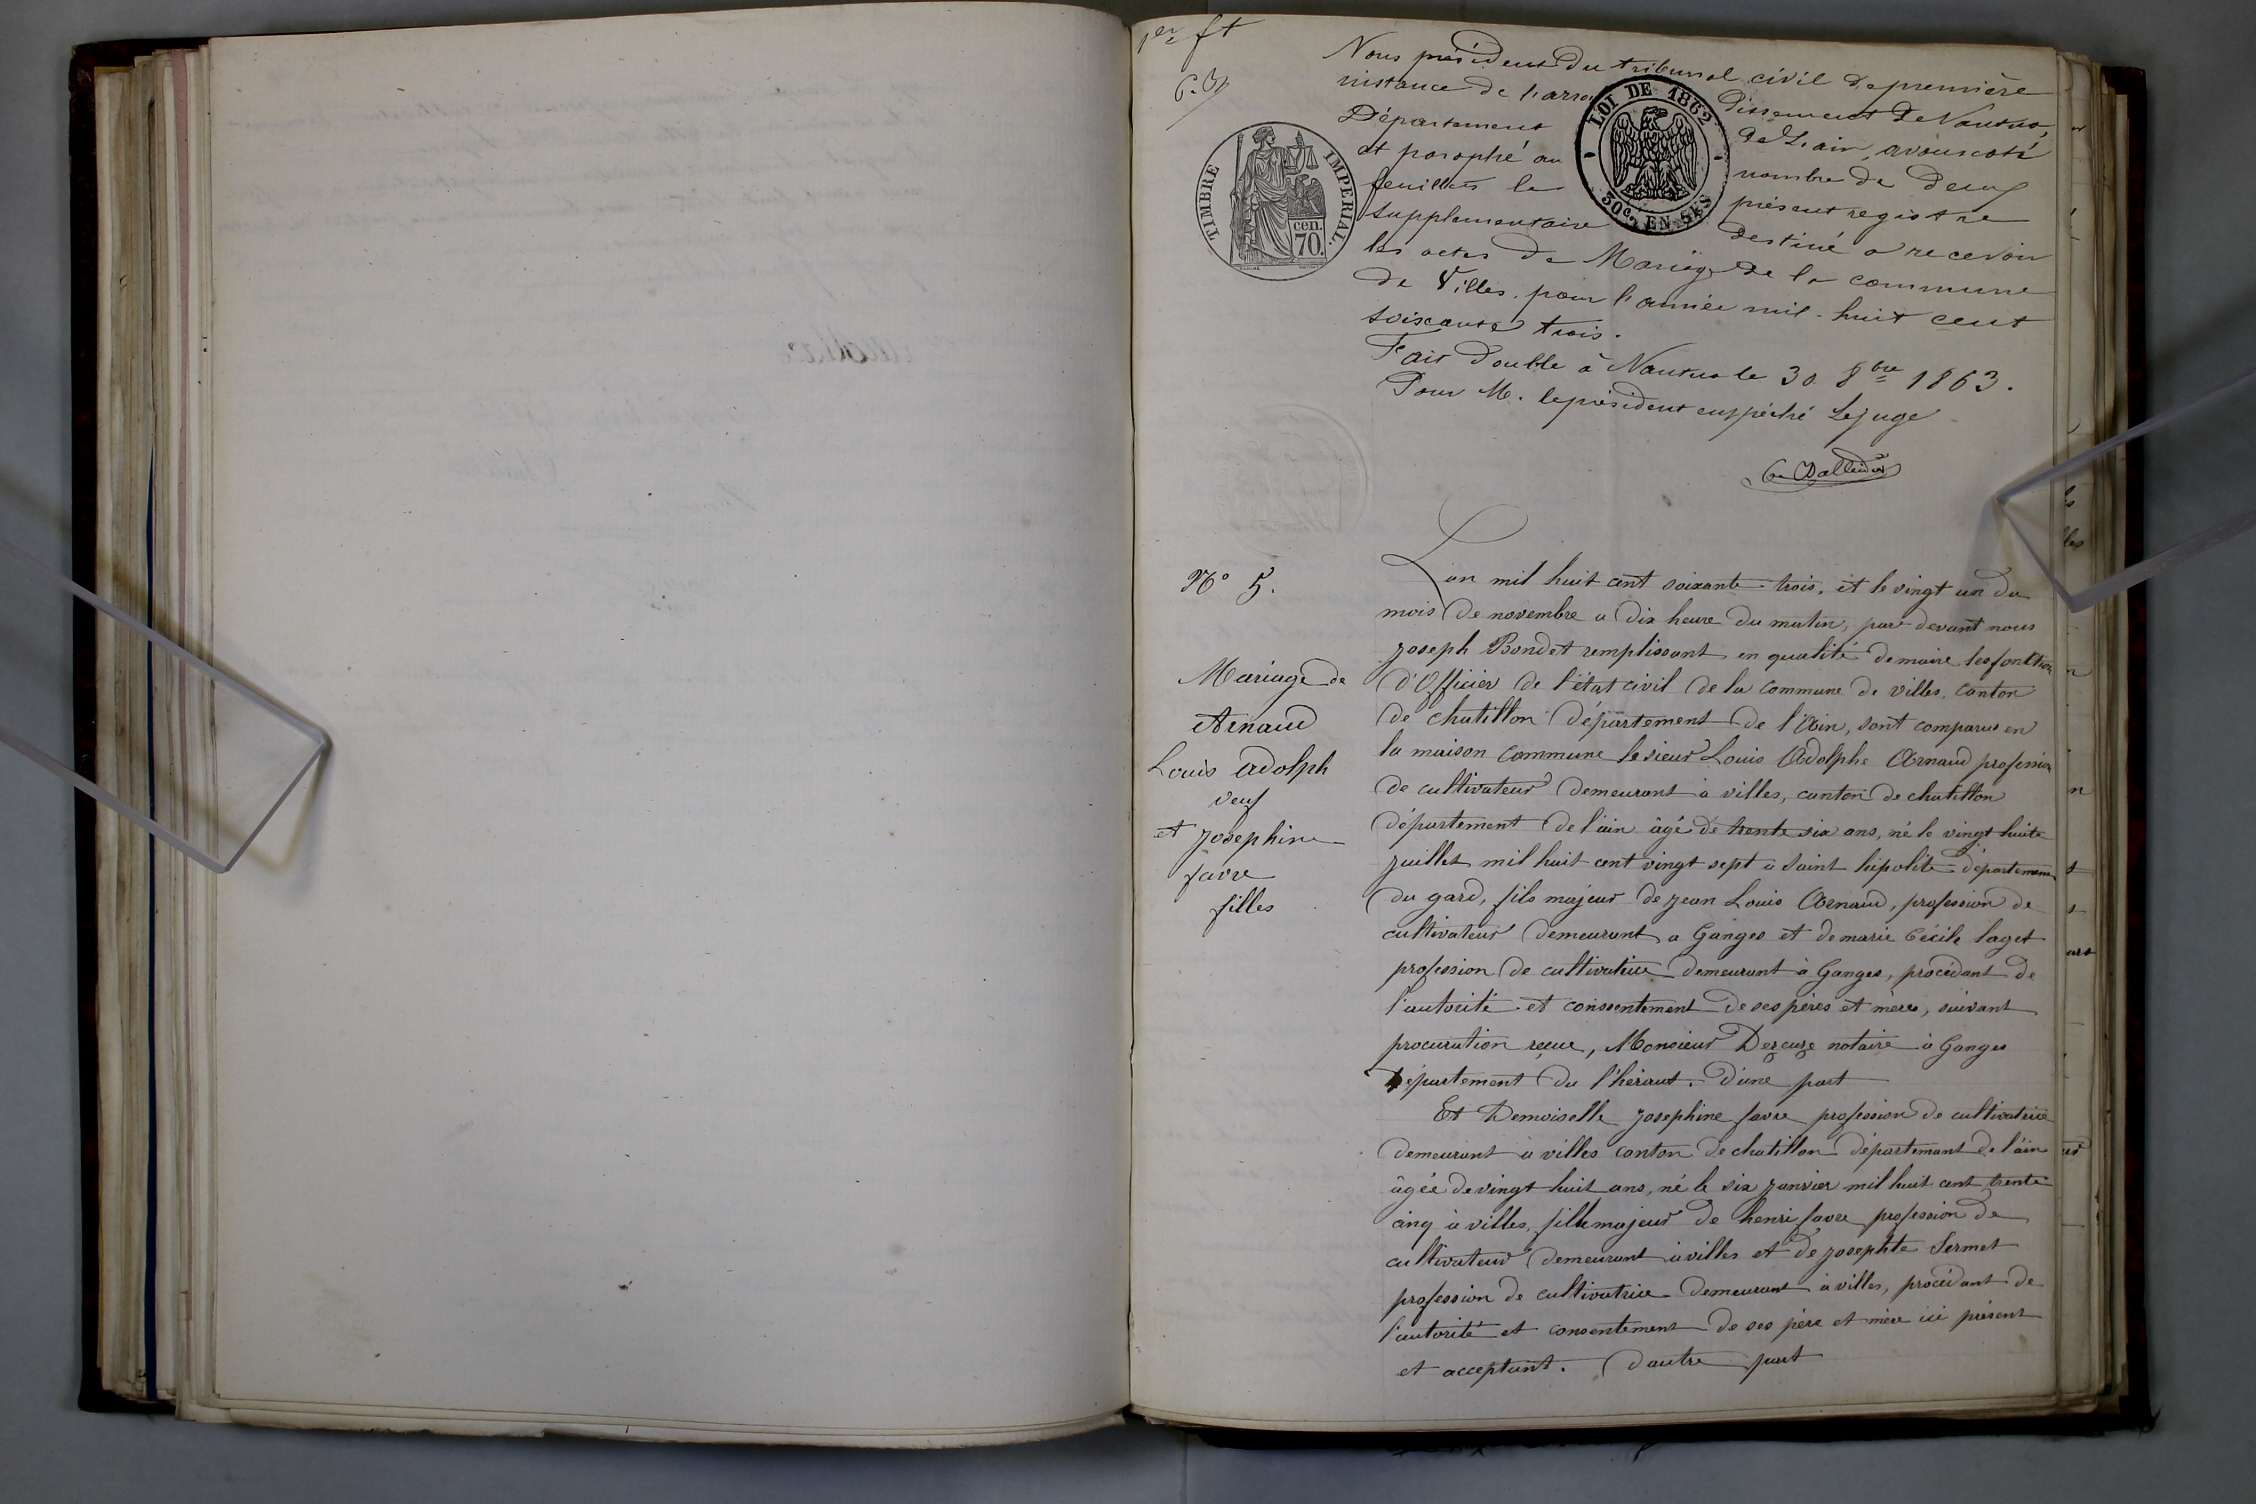 1er ft
Nous président du tribunal civil de première
instance de l'arron dissement de Nantua,
Département de L'ain, avons coté
et paraphé au nombre de deux
feuillets le présent registre
supplementaire destiné a recevoir
les actes de Mariage de la commune
de Villes, pour l'année mil-huit cent
soixante trois.
Fait double à Nantua le 30 8bre 1863.
Pour M. le président empêché Le juge
LOI DE 1862
30c. EN SUS
TIMBRE IMPERIAL.
cen.
70.
No 5.
Mariage de
Arnaud
Louis adolph
veuf
et josephine
favre
filles
L'an mil huit cent soixante trois, et le vingt un du
mois de novembre a dix heure du matin, par devant nous
joseph Bondet remplissant en qualité de maire les fonction
d'Officier de l'état civil de la commune de villes, canton
de chatillon département de l'Ain, sont comparus en
la maison commune le sieur Louis Adolphe Arnaud profession
de cultivateur demeurant à villes, canton de chatillon
département de l'ain âgé de trente six ans, né le vingt huite
juillet mil huit cent vingt sept à saint hipolite département
du gard, fils majeur de jean Louis Arnaud, profession de
cultivateur demeurant a Ganges et de marie Cécile laget
profession de cultivatrice demeurant à Ganges, procédant de
l'autorité et conssentement de ses pères et mère, suivant
procuration reçue, Monsieur notaire à Ganges
Département du l'héraut. d'une part
Et Demoiselle josephine favre profession de cultivatrice
demeurant à villes canton de chatillon départemant de l'ain
âgée de vingt huit ans, né le six janvier mil huit cent trente
cinq à villes, fille majeur de henri favre profession de
cultivateur demeurant à villes et de josephte Sermet
profession de cultivatrice demeurant à villes, procédant de
l'autorité et consentement de ses père et mère ici présent
et acceptant. d'autre part